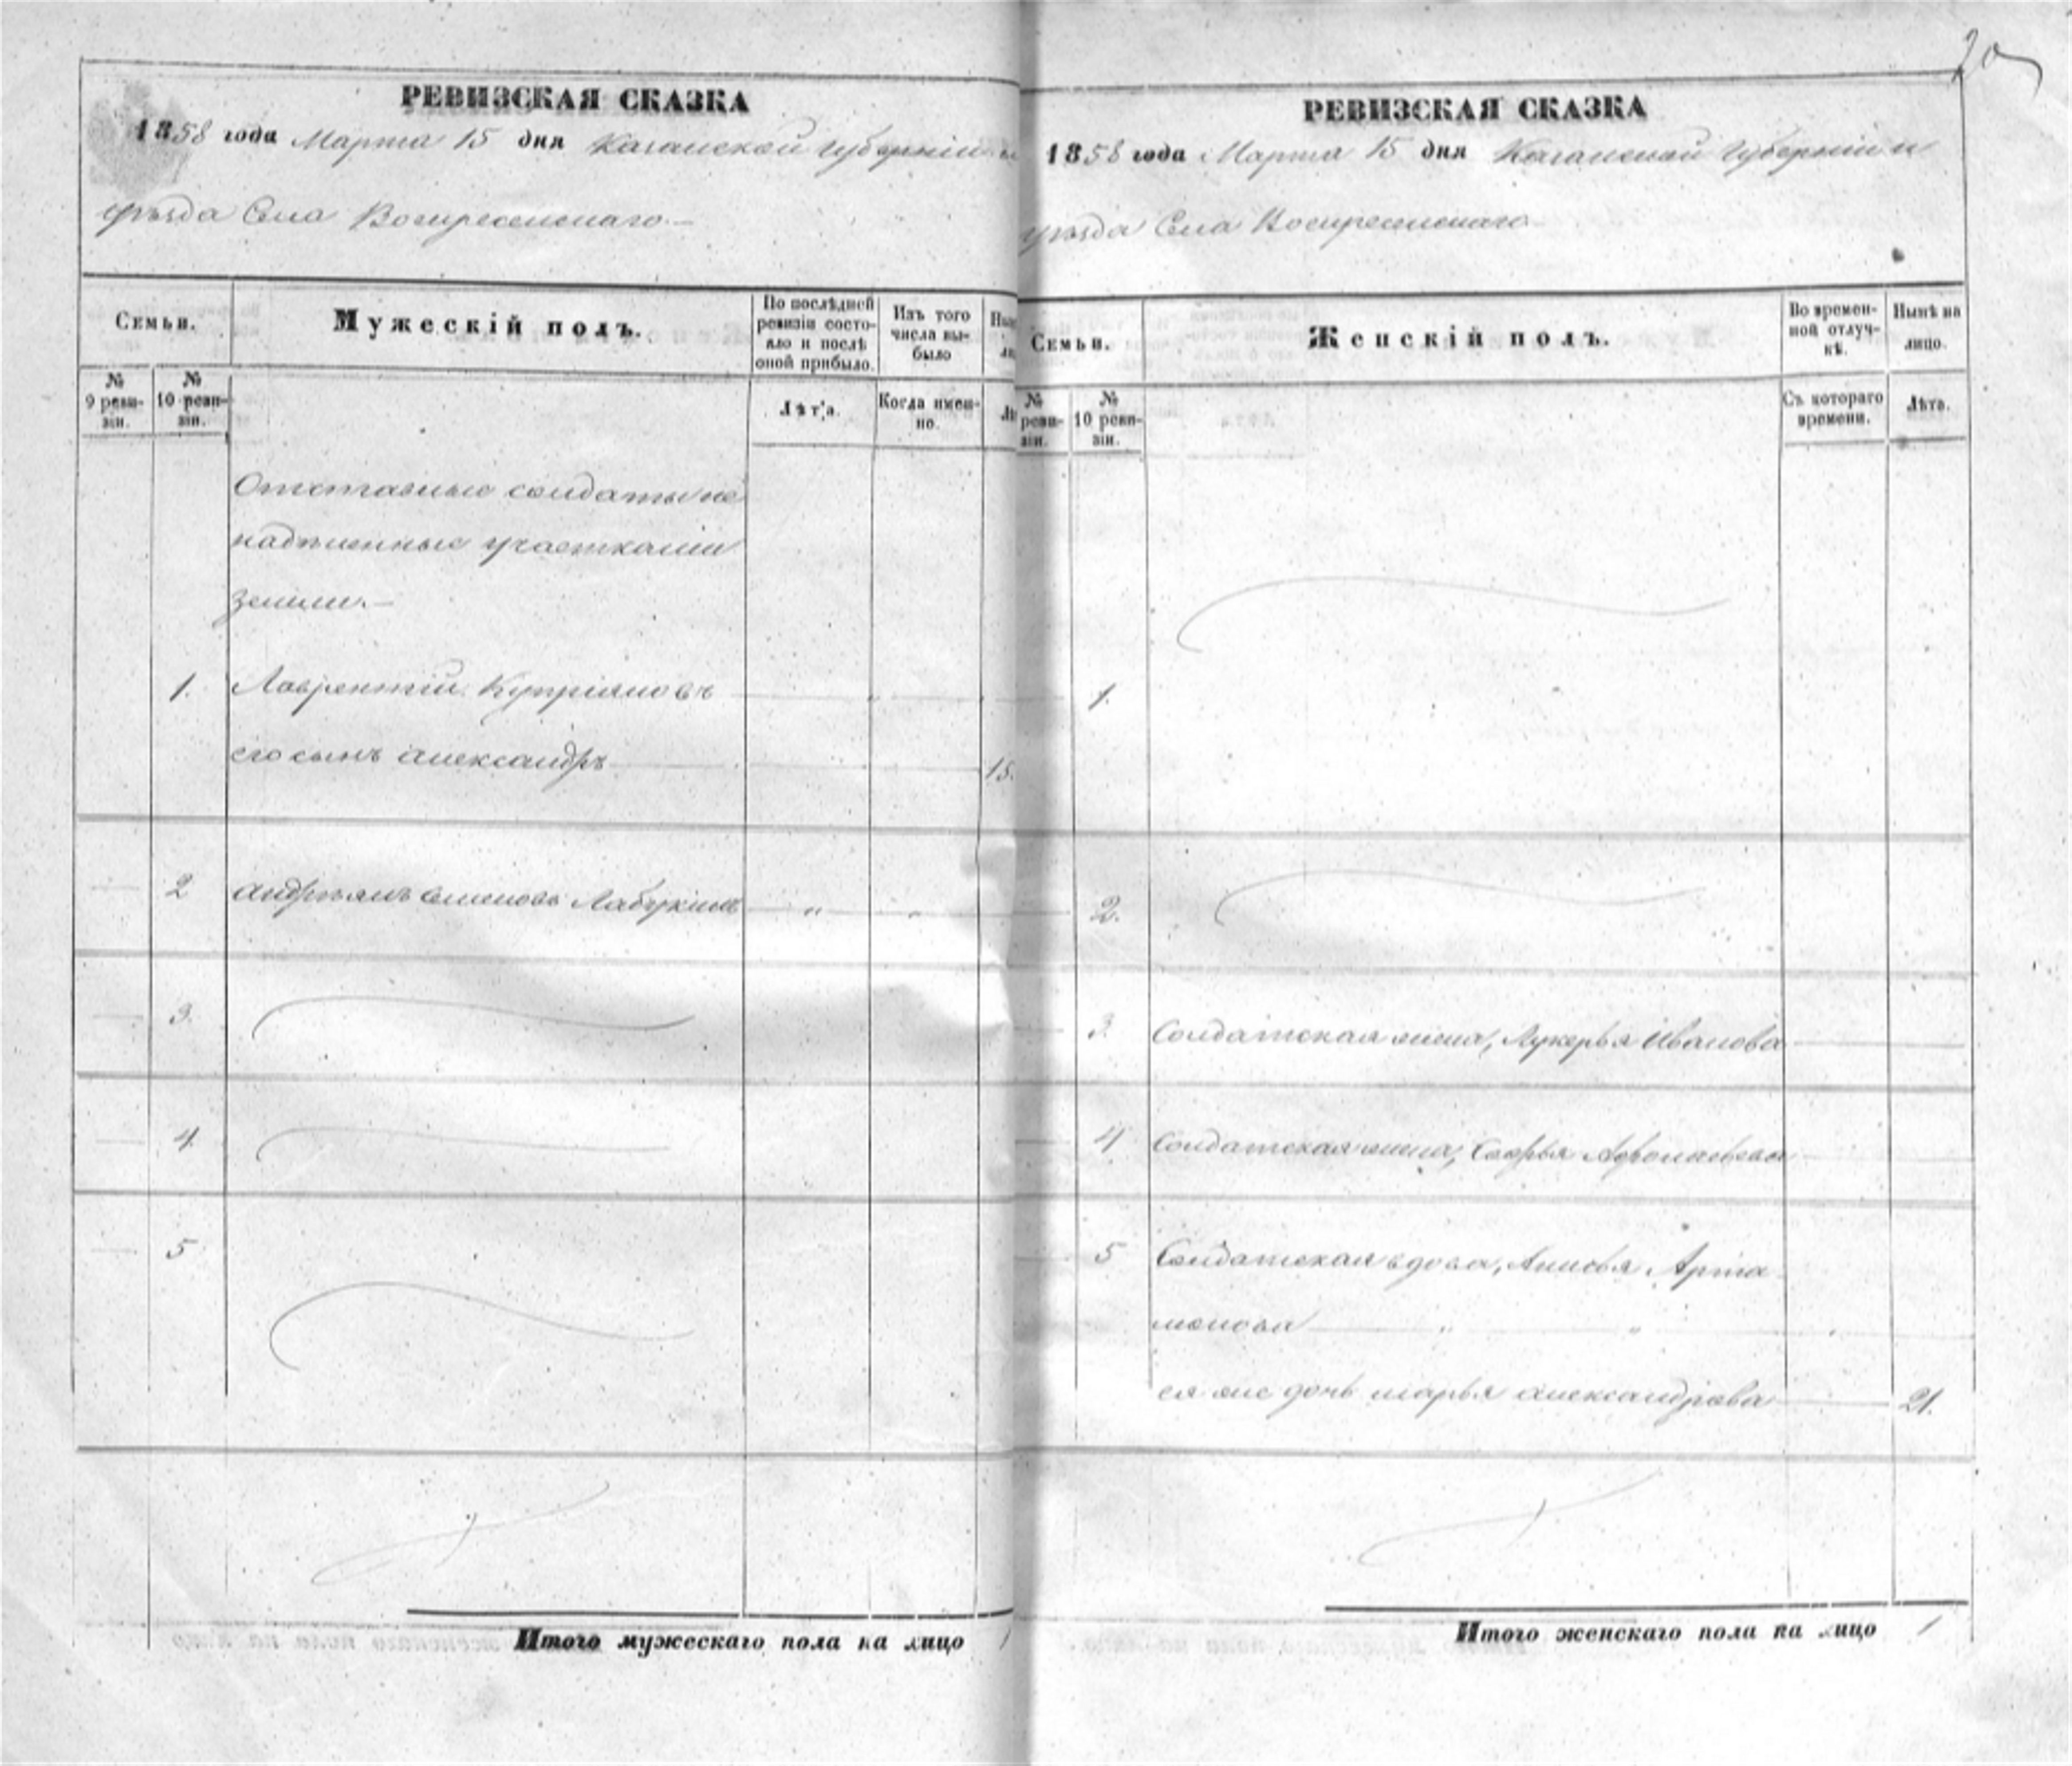 20
РЕВИЗСКАЯ СКАЗКА
1858 года Марта 15 дня Казанской Губерніи и
уѣзда Села Воскресенскаго.—
Семьи.
Мужескій полъ.
По послѣдней ревизіи состояло и послѣ оной прибыло.
Изъ того числа выбыло
№ 9 ревизіи.
№ 10 ревизіи.
Лѣта.
Когда именно.
Отставные солдаты не
надѣленные участками
земли.—
1. Лаврентій Купріяновъ
его сынъ Александръ 15.
2 Андреянъ Семеновъ Лабукинъ
3.
4.
5
Итого мужескаго пола на лицо 1
РЕВИЗСКАЯ СКАЗКА
1858 года Марта 15 дня Казанской Губерніи и
уѣзда Села Воскресенскаго
Семьи.
Женскій полъ.
Во временной отлучкѣ.
Нынѣ на лицо.
№ ревизіи.
№ 10 ревизіи.
Съ котораго времени.
Лѣта.
1.
2.
3. Солдатская жена, Лукерья Иванова
4 Солдатская жена, Софья
5 Солдатская вдова, Анисья Арта
монова
ея же дочь Марья Александрова 21.
Итого женскаго пола на лицо 1